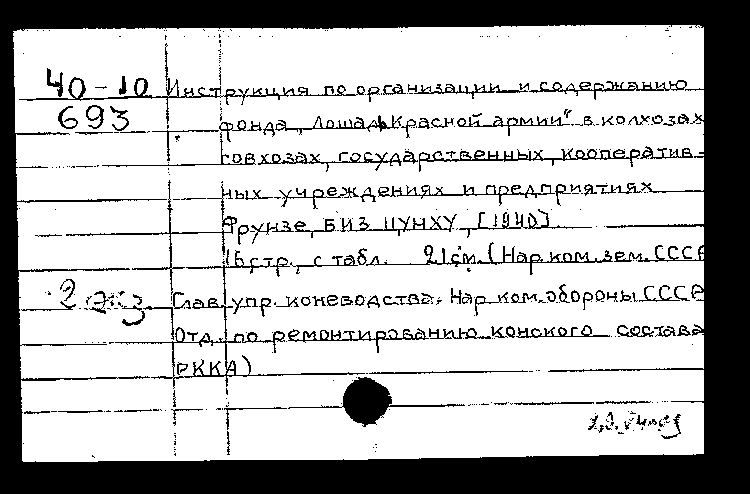 40-10 Инструкция по организации и содержанию
693 фонда „Лошадь Красной армии" в колхозах
совхозах, государственных, кооператив-
ных учреждениях и предприятиях
Фрунзе, БИЗ ЦУНХУ, [1940]
16 стр., с табл. 21 см. (Нар.ком.зем. СССР
2 экз. Глав. упр. коневодства. Нар.ком.обороны СССР
Отд. по ремонтированию конского состава
РККА)